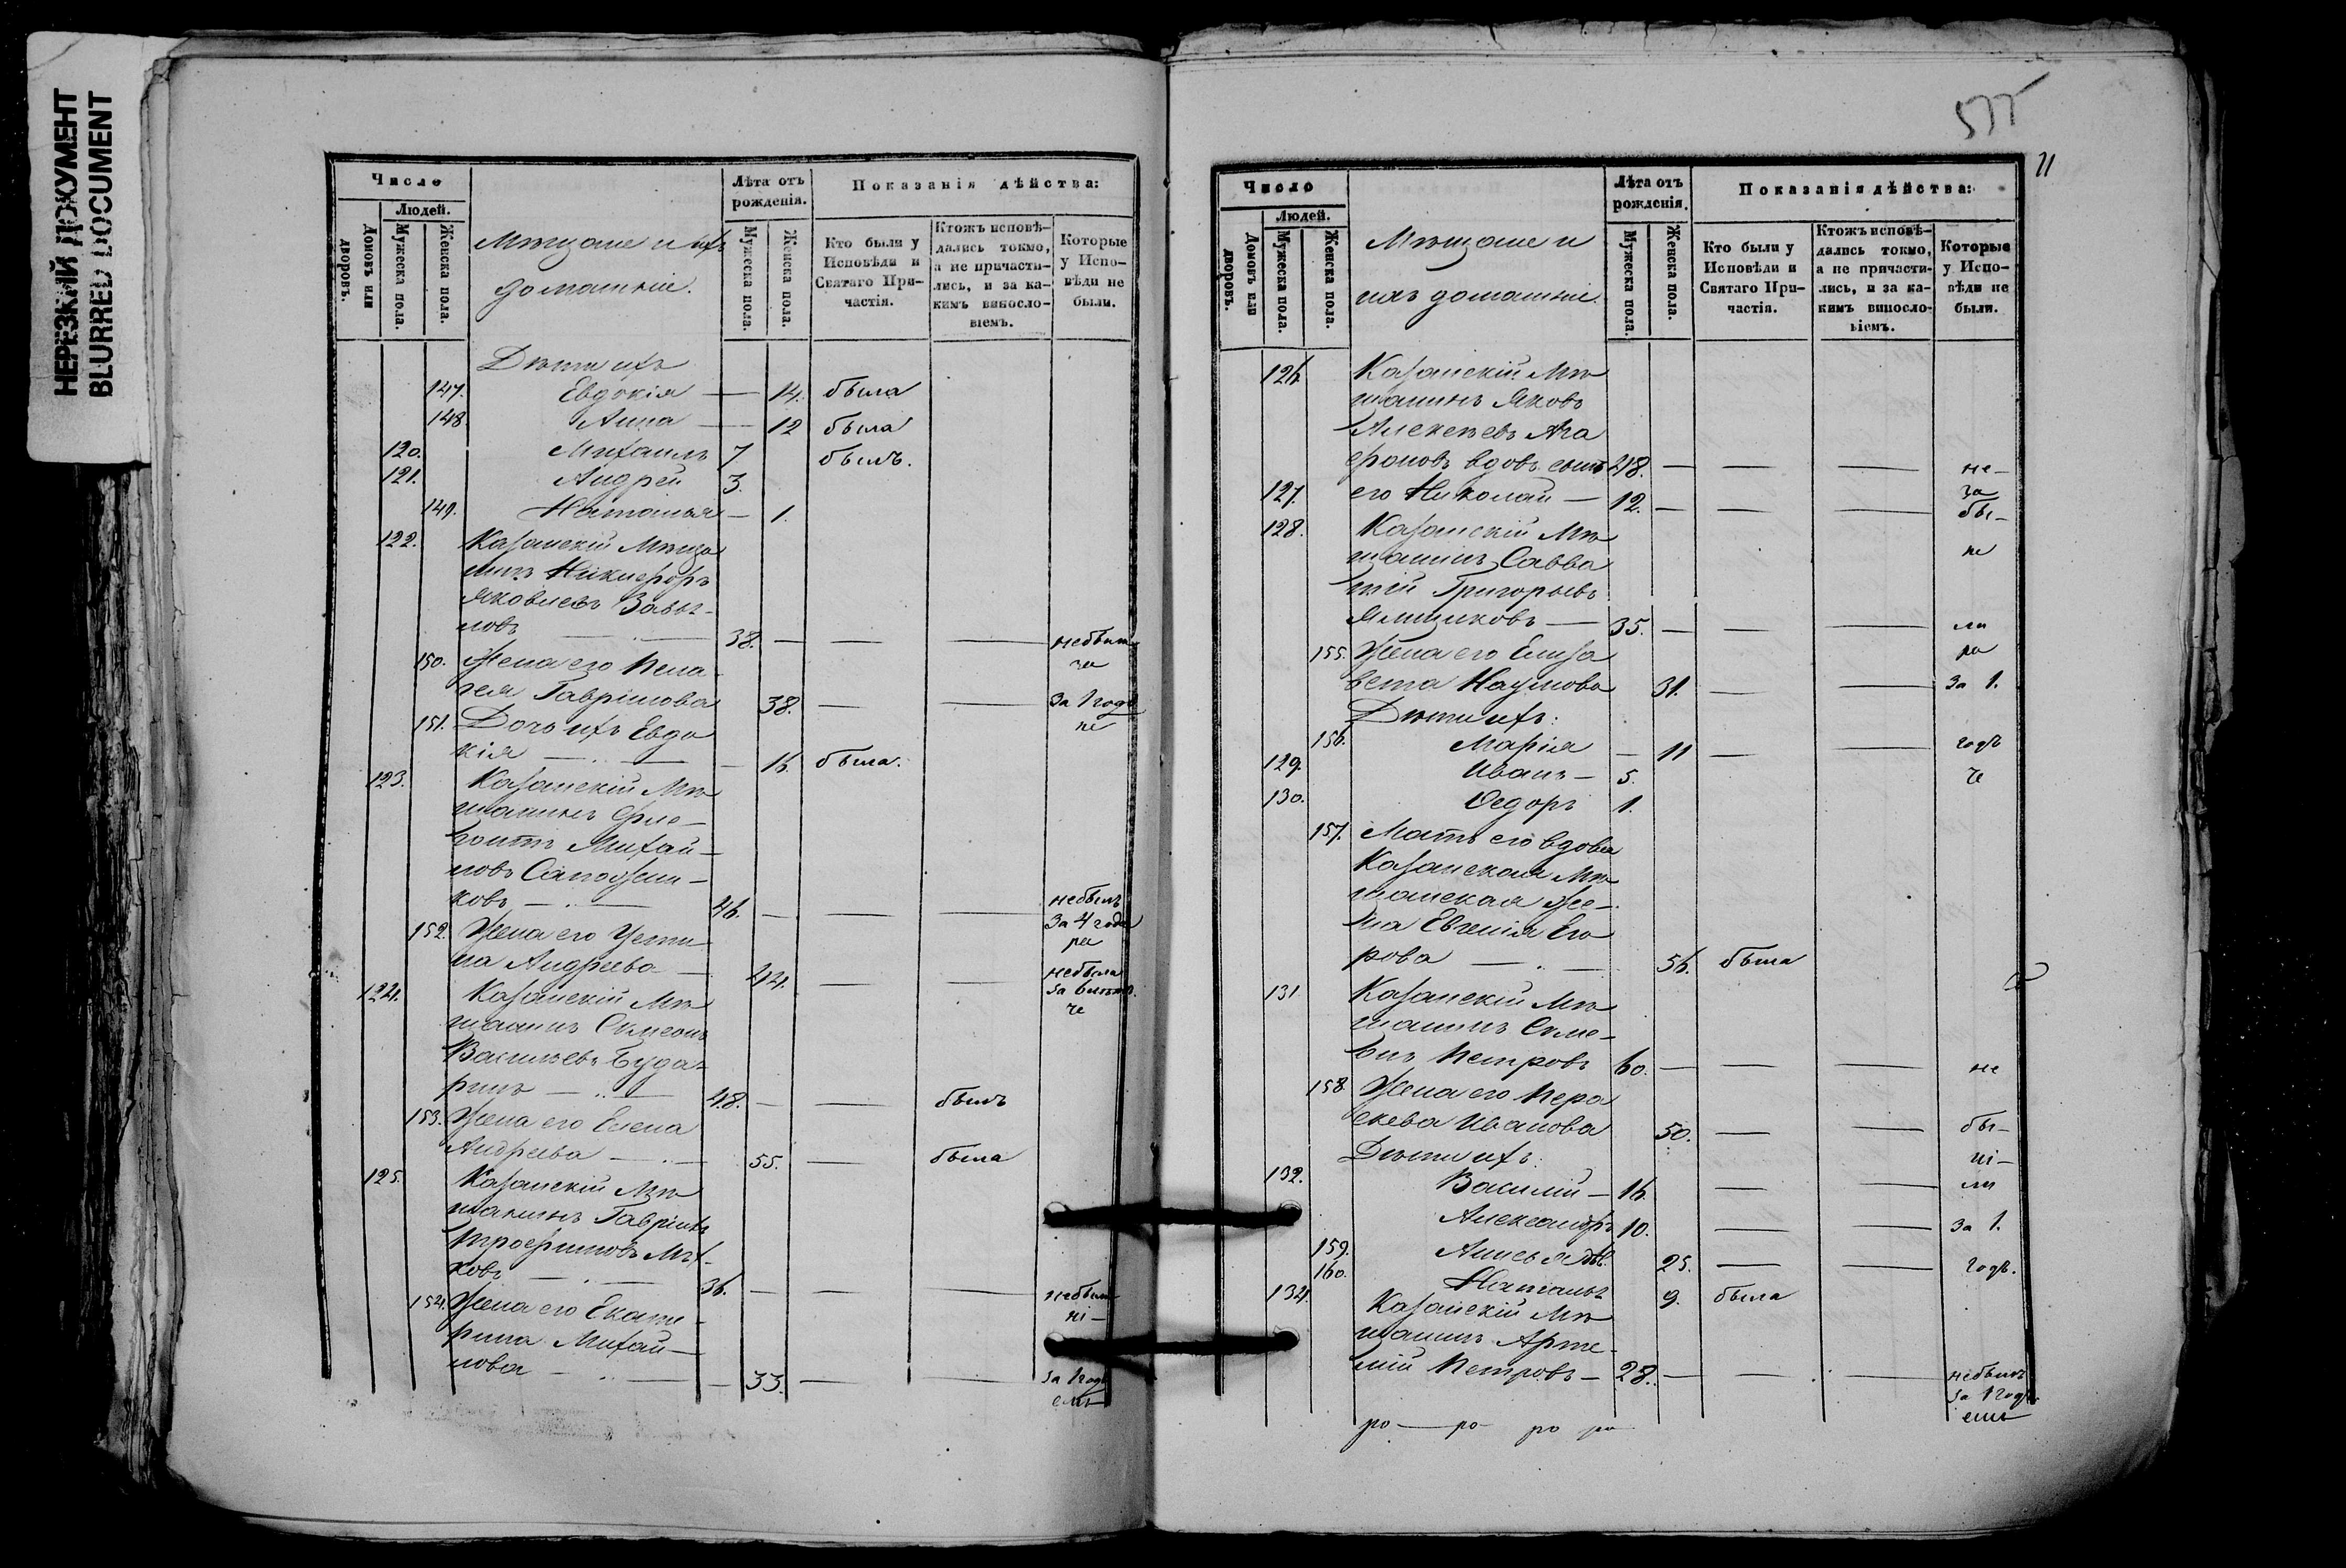 НЕРЕЗКИЙ ДОКУМЕНТ
BLURRED DOCUMENT
Число
Людей.
Домовъ или дворовъ.
Мужеска пола.
Женска пола.
Мѣщане и ихъ
домашніе.
Лѣта отъ рожденія.
Мужеска пола.
Женска пола.
Показанія дѣйства:
Кто были у Исповѣди и Святаго При-частія.
Ктожъ исповѣ-дались токмо, а не причасти-лись, и за ка-кимъ виносло-віемъ.
Которые у Испо-вѣди не были.
Дѣти ихъ
147. Евдокія — 14. была
148. Анна — 12 была
120. Михаилъ 7 былъ.
121. Андрей 3.
149. Наталья — 1.
122. Казанскій Мѣща
нинъ Никифоръ
Яковлевъ Завы-
ловъ — 38. — — — небыли
150. Жена его Пела-
гея Гаврилова 38. — — за 1 годъ
151. Дочь ихъ Евдо
кія — 16. была.
123. Казанскій Мѣ
щанинъ Фле-
гонтъ Михай-
ловъ Сапожни-
ковъ — 46. — — — небылъ
за 4 года
152. Жена его Усти
на Андреева — 44. — — небыла
124. Казанскій Мѣ
щанинъ Симеонъ
Васильевъ Буда-
ринъ — 48. — — былъ
153. Жена его Елена
Андреева — 55. — была
125. Казанскій Мѣ
щанинъ Гаврілъ
Трофимовъ
ковъ — 36. — — — небыли
154. Жена его Екате-
рина Михай-
лова — 33. — — за 1 годъ
577
11
Число
Людей.
Домовъ или дворовъ.
Мужеска пола.
Женска пола.
Мѣщане и
ихъ домашніе.
Лѣта отъ рожденія.
Мужеска пола.
Женска пола.
Показанія дѣйства:
Кто были у Исповѣди и Святаго При-частія.
Ктожъ исповѣ-дались токмо, а не причасти-лись, и за ка-кимъ виносло-віемъ.
Которые у Испо-вѣди не были.
126. Казанскій Мѣ
щанинъ Яковъ
Алексѣевъ Ага
фоновъ вдовъ сынъ 48. — — — не-
127. его Николай — 12. — — — бы-
128. Казанскій Мѣ
щанинъ Савва
тій Григорьевъ
Ямщиковъ — 35. — — — ли
155. Жена его Елиза
вета Наумова 31. — — за 1.
Дѣти ихъ:
156. Марія — 11 — — годъ
129. Иванъ — 5.
130. Ѳедоръ 1.
157. Мать его вдова
Казанская Мѣ
щанская же-
на Евгенія Его
рова — 56. была
131 Казанскій Мѣ
щанинъ Симе-
онъ Петровъ 60. — — — не
158. Жена его Пара
скева Иванова 50. — — бы-
Дѣти ихъ:
132. Василій — 16. — — ли
Александръ 10. — — за 1.
159. Анисья дѣв. 25. — — годъ.
160. Наталья 9. была
134. Казанскій Мѣ
щанинъ Арте-
мій Петровъ — 28. — — — небылъ
за 1 годъ.
ро — ро ро ро